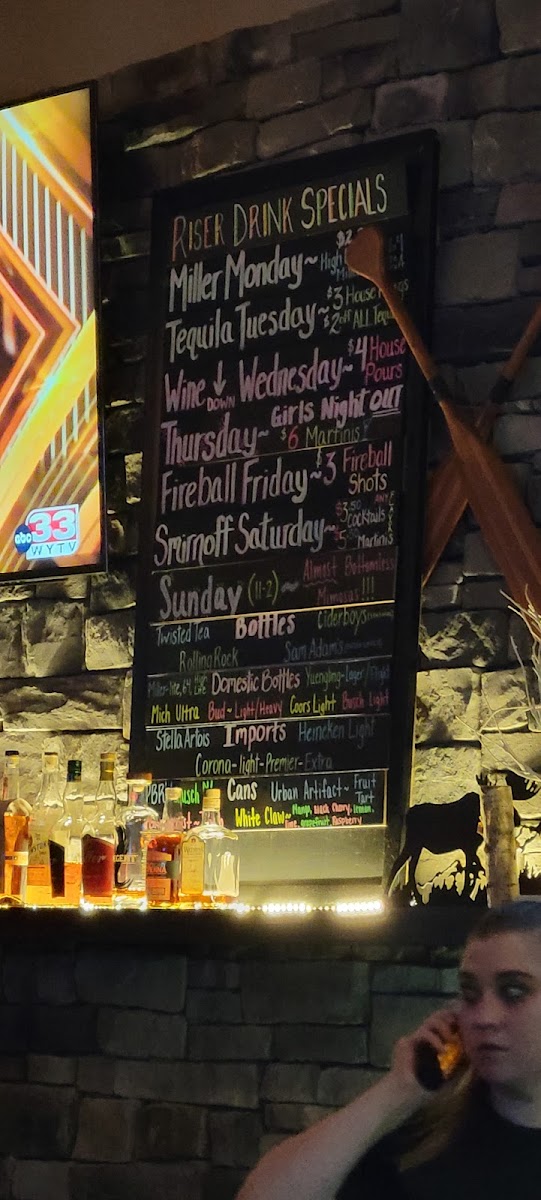 RISER DRINK SPECIALS
Miller Monday~
High
Tequila Tuesday~
$3 House
$2 off ALL
Wine ↓ DOWN Wednesday~ $4 House Pours
Thursday~ Girls Night OUT
$6 Martinis
Fireball Friday~ $3 Fireball Shots
Smirnoff Saturday~ $3.50 Cocktails
$5 Martinis
Sunday (11-2)~ Almost Bottomless
Mimosas!!!
Twisted Tea Bottles Ciderboys
Rolling Rock Sam Adam's
Miller-lite, 64, High Life Domestic Bottles Yuengling-Lager/Flight
Mich Ultra Bud~Light/Heavy Coors Light Busch Light
Stella Artois Imports Heineken Light
Corona-light-Premier-Extra
PBR Cans Urban Artifact~ Fruit Tart
White Claw~ Mango, Black Cherry, lemon,
lime, grapefruit, Raspberry
abc 33
WYTV